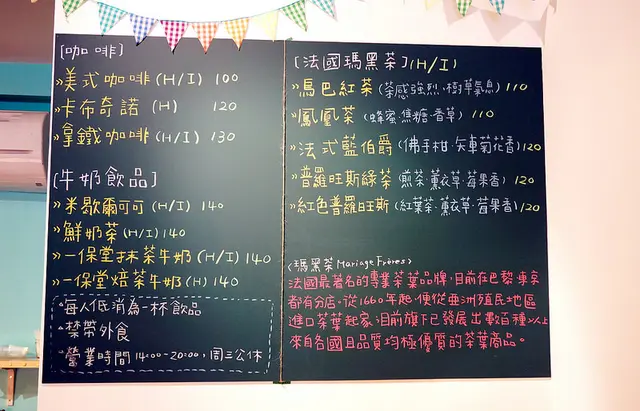 [咖啡]
»美式咖啡(H/I) 100
»卡布奇諾(H) 120
»拿鐵咖啡(H/I) 130
[牛奶飲品]
»米歇爾可可(H/I) 140
»鮮奶茶(H/I) 140
»一保堂抹茶牛奶(H/I) 140
»一保堂焙茶牛奶(H) 140
每人低消為一杯飲品
禁帶外食
營業時間14:00-20:00,周三公休
[法國瑪黑茶](H/I)
»馬巴紅茶(茶感強烈、樹草氣息) 110
»鳳凰茶(蜂蜜·焦糖·香草) 110
»法式藍伯爵(佛手柑·矢車菊花香) 120
»普羅旺斯綠茶(煎茶·薰衣草·莓果香) 120
»紅色普羅旺斯(紅葉茶·薰衣草·莓果香) 120
〈瑪黑茶Mariage Frères〉
法國最著名的專業茶葉品牌,目前在巴黎、東京
都有分店。從1660年起,便從亞洲殖民地區
進口茶葉起家,目前旗下已發展出數百種以上
來自各國且品質均極優質的茶葉商品。